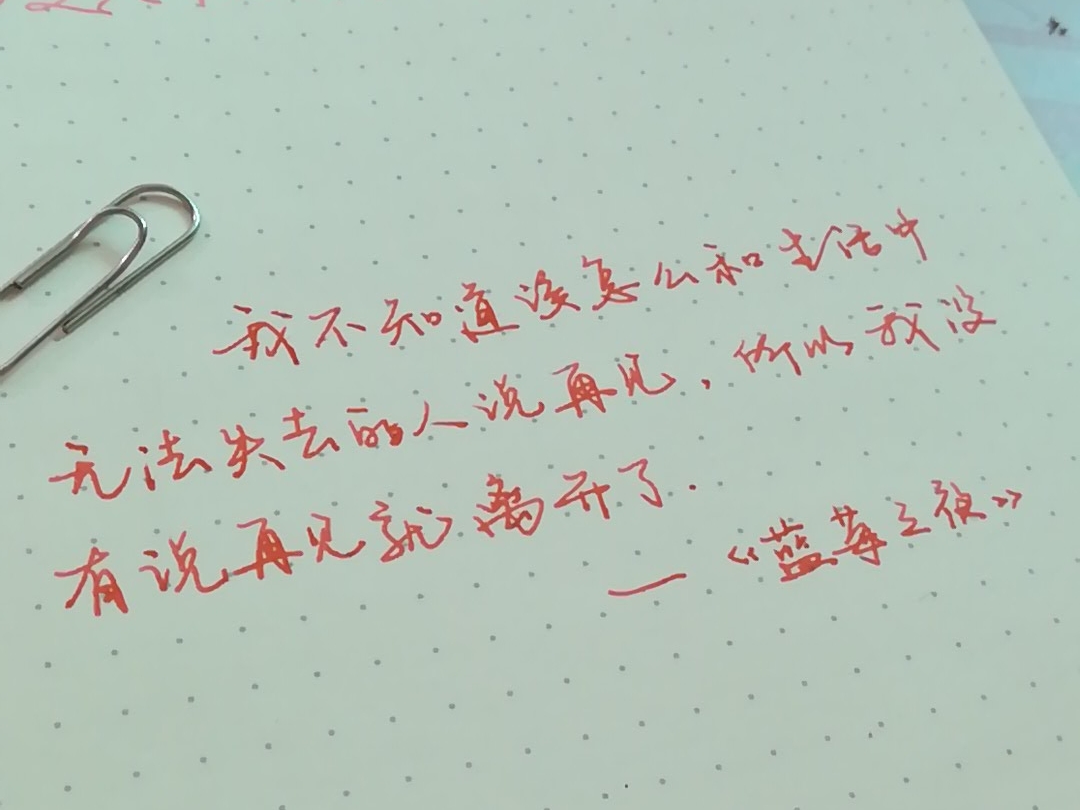 我不知道该怎么和生活中
无法失去的人说再见，所以我没
有说再见就离开了.
—《蓝莓之夜》